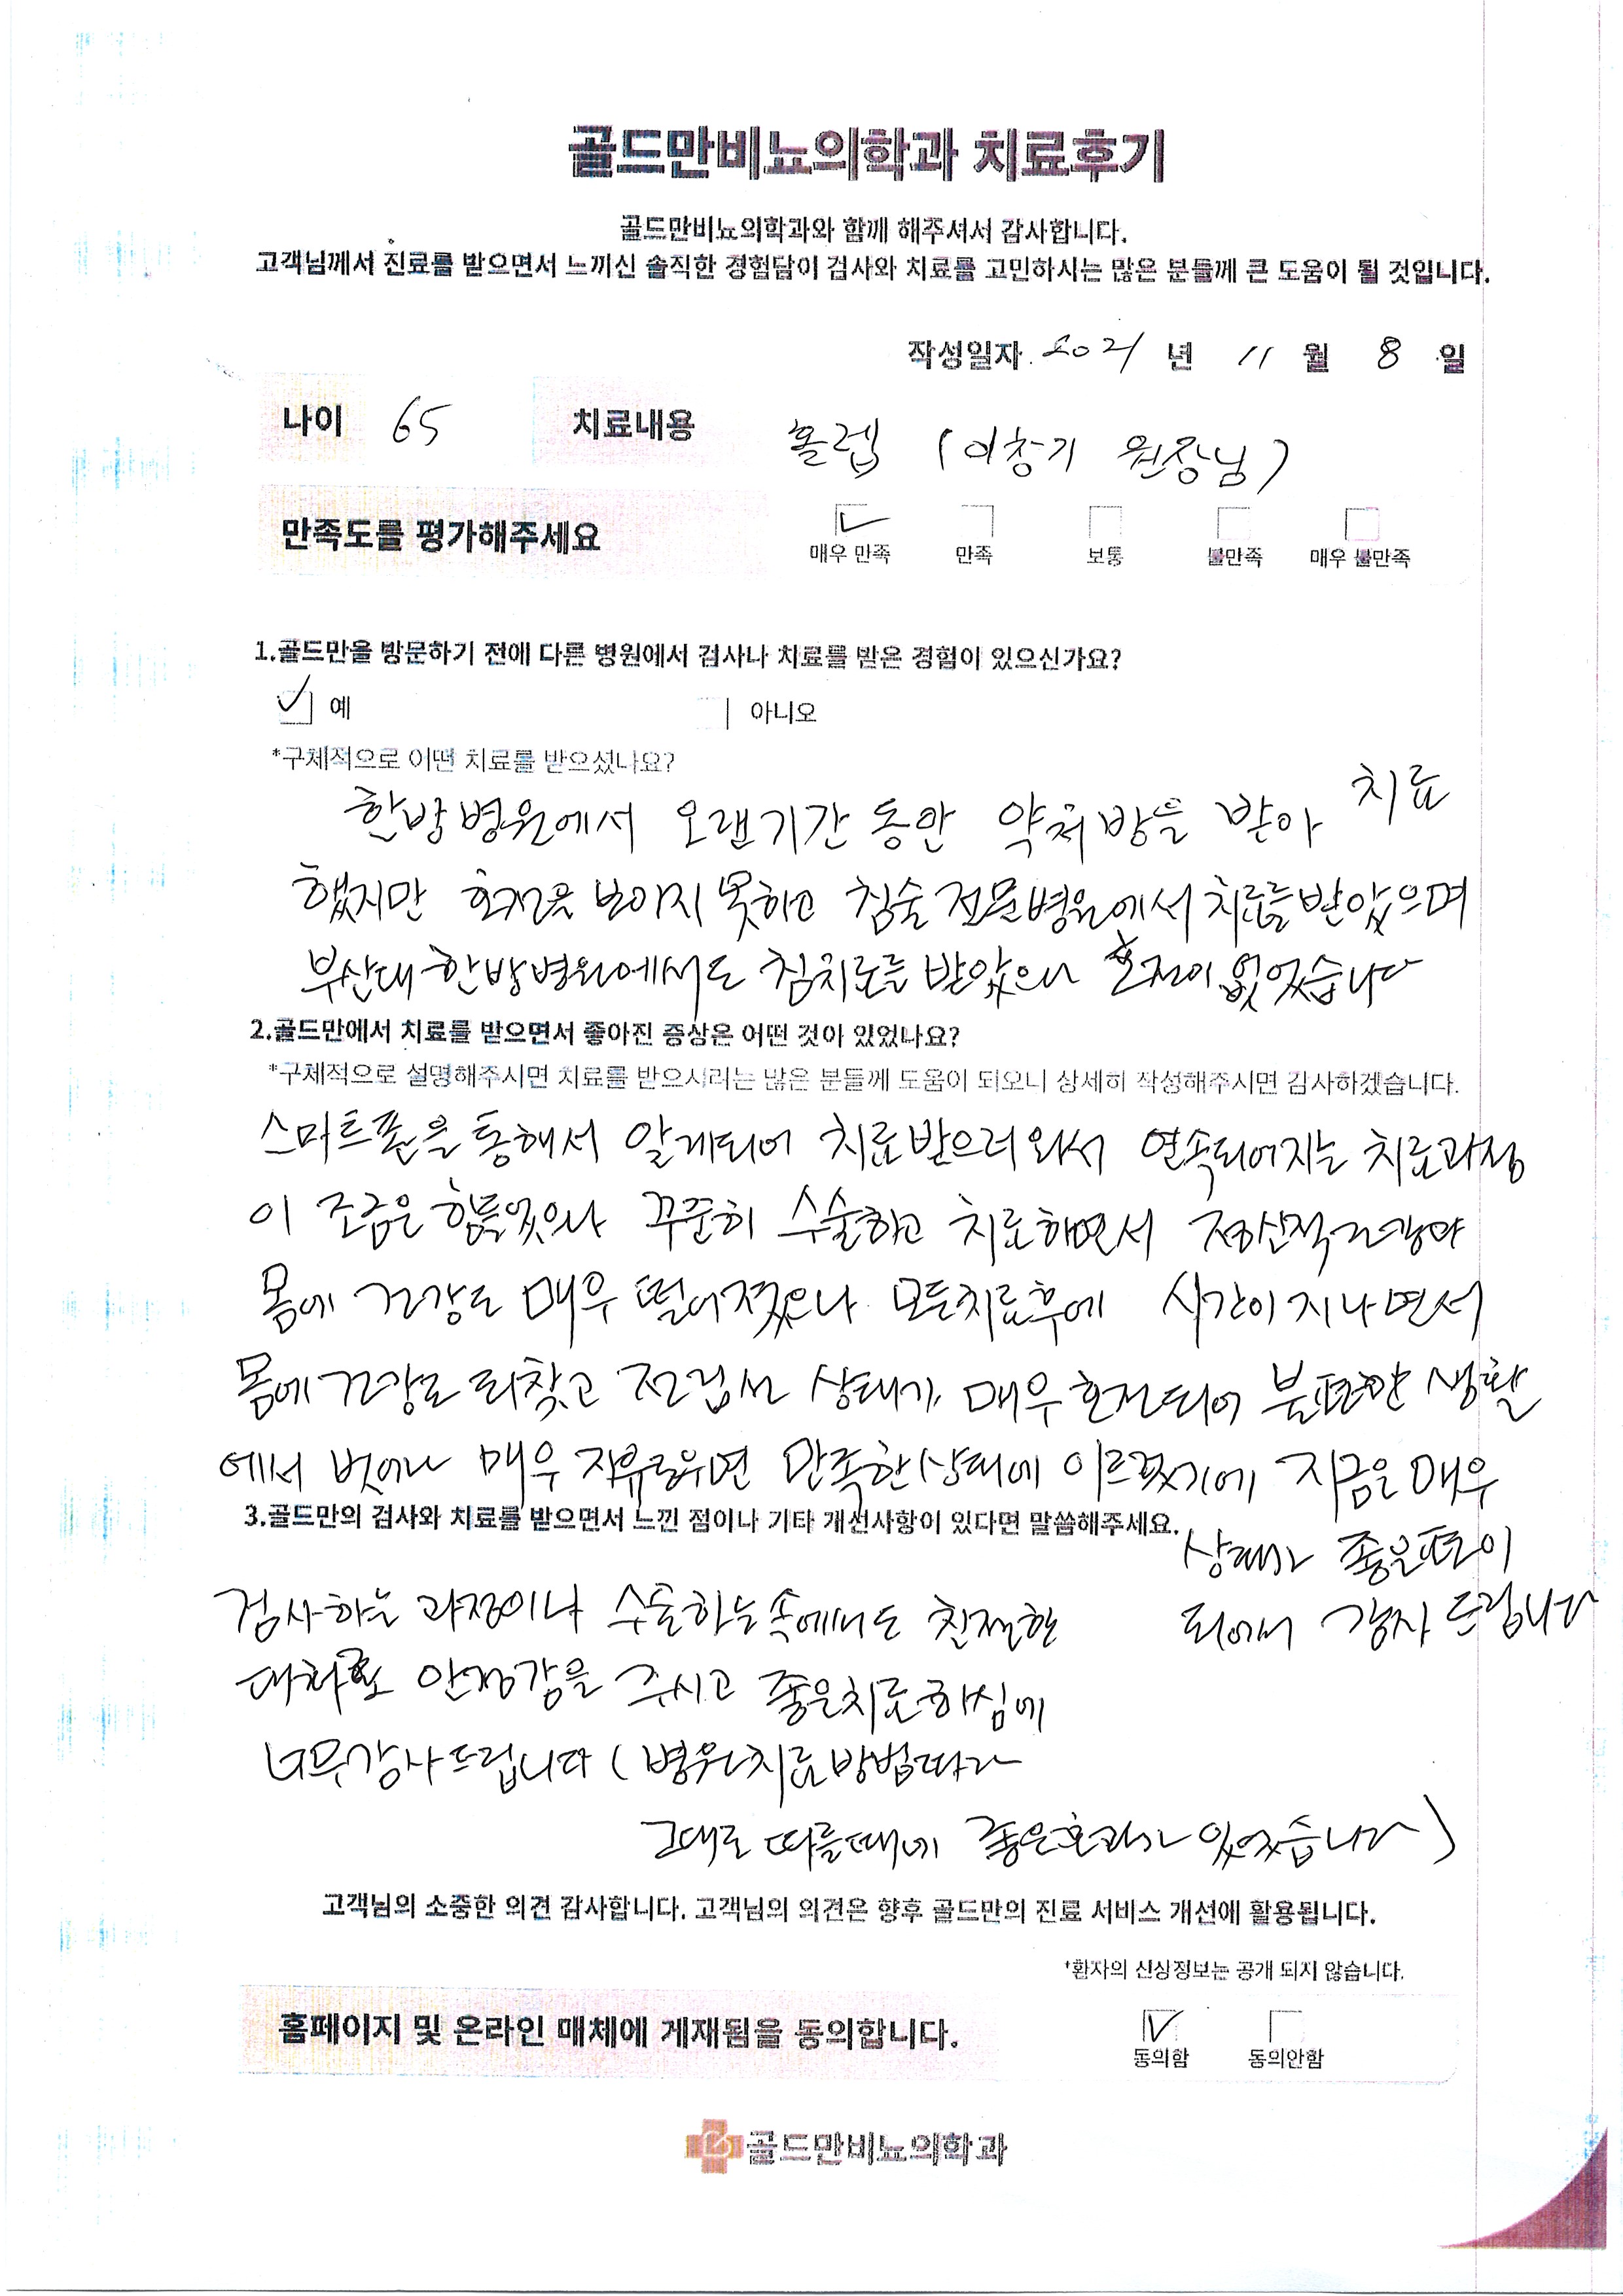 골드만비뇨의학과 치료후기
골드만비뇨의학과와 함께 해주셔서 감사합니다.
고객님께서 진료를 받으면서 느끼신 솔직한 경험담이 검사와 치료를 고민하시는 많은 분들께 큰 도움이 될 것입니다.
작성일자 2021 년 11 월 8 일
나이 65 치료내용 홀렙 (이창기 원장님)
만족도를 평가해주세요
매우 만족 만족 보통 불만족 매우 불만족
1.골드만을 방문하기 전에 다른 병원에서 검사나 치료를 받은 경험이 있으신가요?
예 아니오
*구체적으로 어떤 치료를 받으셨나요?
한방병원에서 오랜기간 동안 약처방을 받아 치료
했지만 호전을 보이지 못하고 침술전문병원에서 치료를 받았으며
부산대한방병원에서도 침치료를 받았으나 호전이 없었습니다
2.골드만에서 치료를 받으면서 좋아진 증상은 어떤 것이 있었나요?
*구체적으로 설명해주시면 치료를 받으시려는 많은 분들께 도움이 되오니 상세히 작성해주시면 감사하겠습니다.
스마트폰을 통해서 알게되어 치료받으러 와서 연속되어지는 치료과정
이 조금은 힘들었으나 꾸준히 수술하고 치료하면서 정신적건강과
몸에 건강도 매우 떨어졌으나 모든치료후에 시간이 지나면서
몸에 건강도 되찾고 전립선 상태가 매우 호전되어 불편한 생활
에서 벗어나 매우 자유로우면 만족한상태에 이르렀기에 지금은 매우
상태가 좋은편이
되어서 감사드립니다
3.골드만의 검사와 치료를 받으면서 느낀 점이나 기타 개선사항이 있다면 말씀해주세요.
검사하는 과정이나 수술하는속에서도 친절한
대처로 안정감을 주시고 좋은치료하심에
너무감사드립니다 (병원치료방법따라
그대로 따를때에 좋은효과가 있었습니다)
고객님의 소중한 의견 감사합니다. 고객님의 의견은 향후 골드만의 진료 서비스 개선에 활용됩니다.
*환자의 신상정보는 공개 되지 않습니다.
홈페이지 및 온라인 매체에 게재됨을 동의합니다.
동의함 동의안함
골드만비뇨의학과